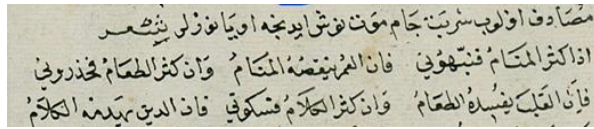 مصادف اولوب شربت جام موت نوش ايدنجه اويانوزلر شعر
اذا كثر المنام فنبهوني فان العمر ينقصه المنام وان كثر الطعام فحذروني
فان القلب يفسده الطعام وان كثر الكلام فسكوتي فان الدين يهدمه الكلام